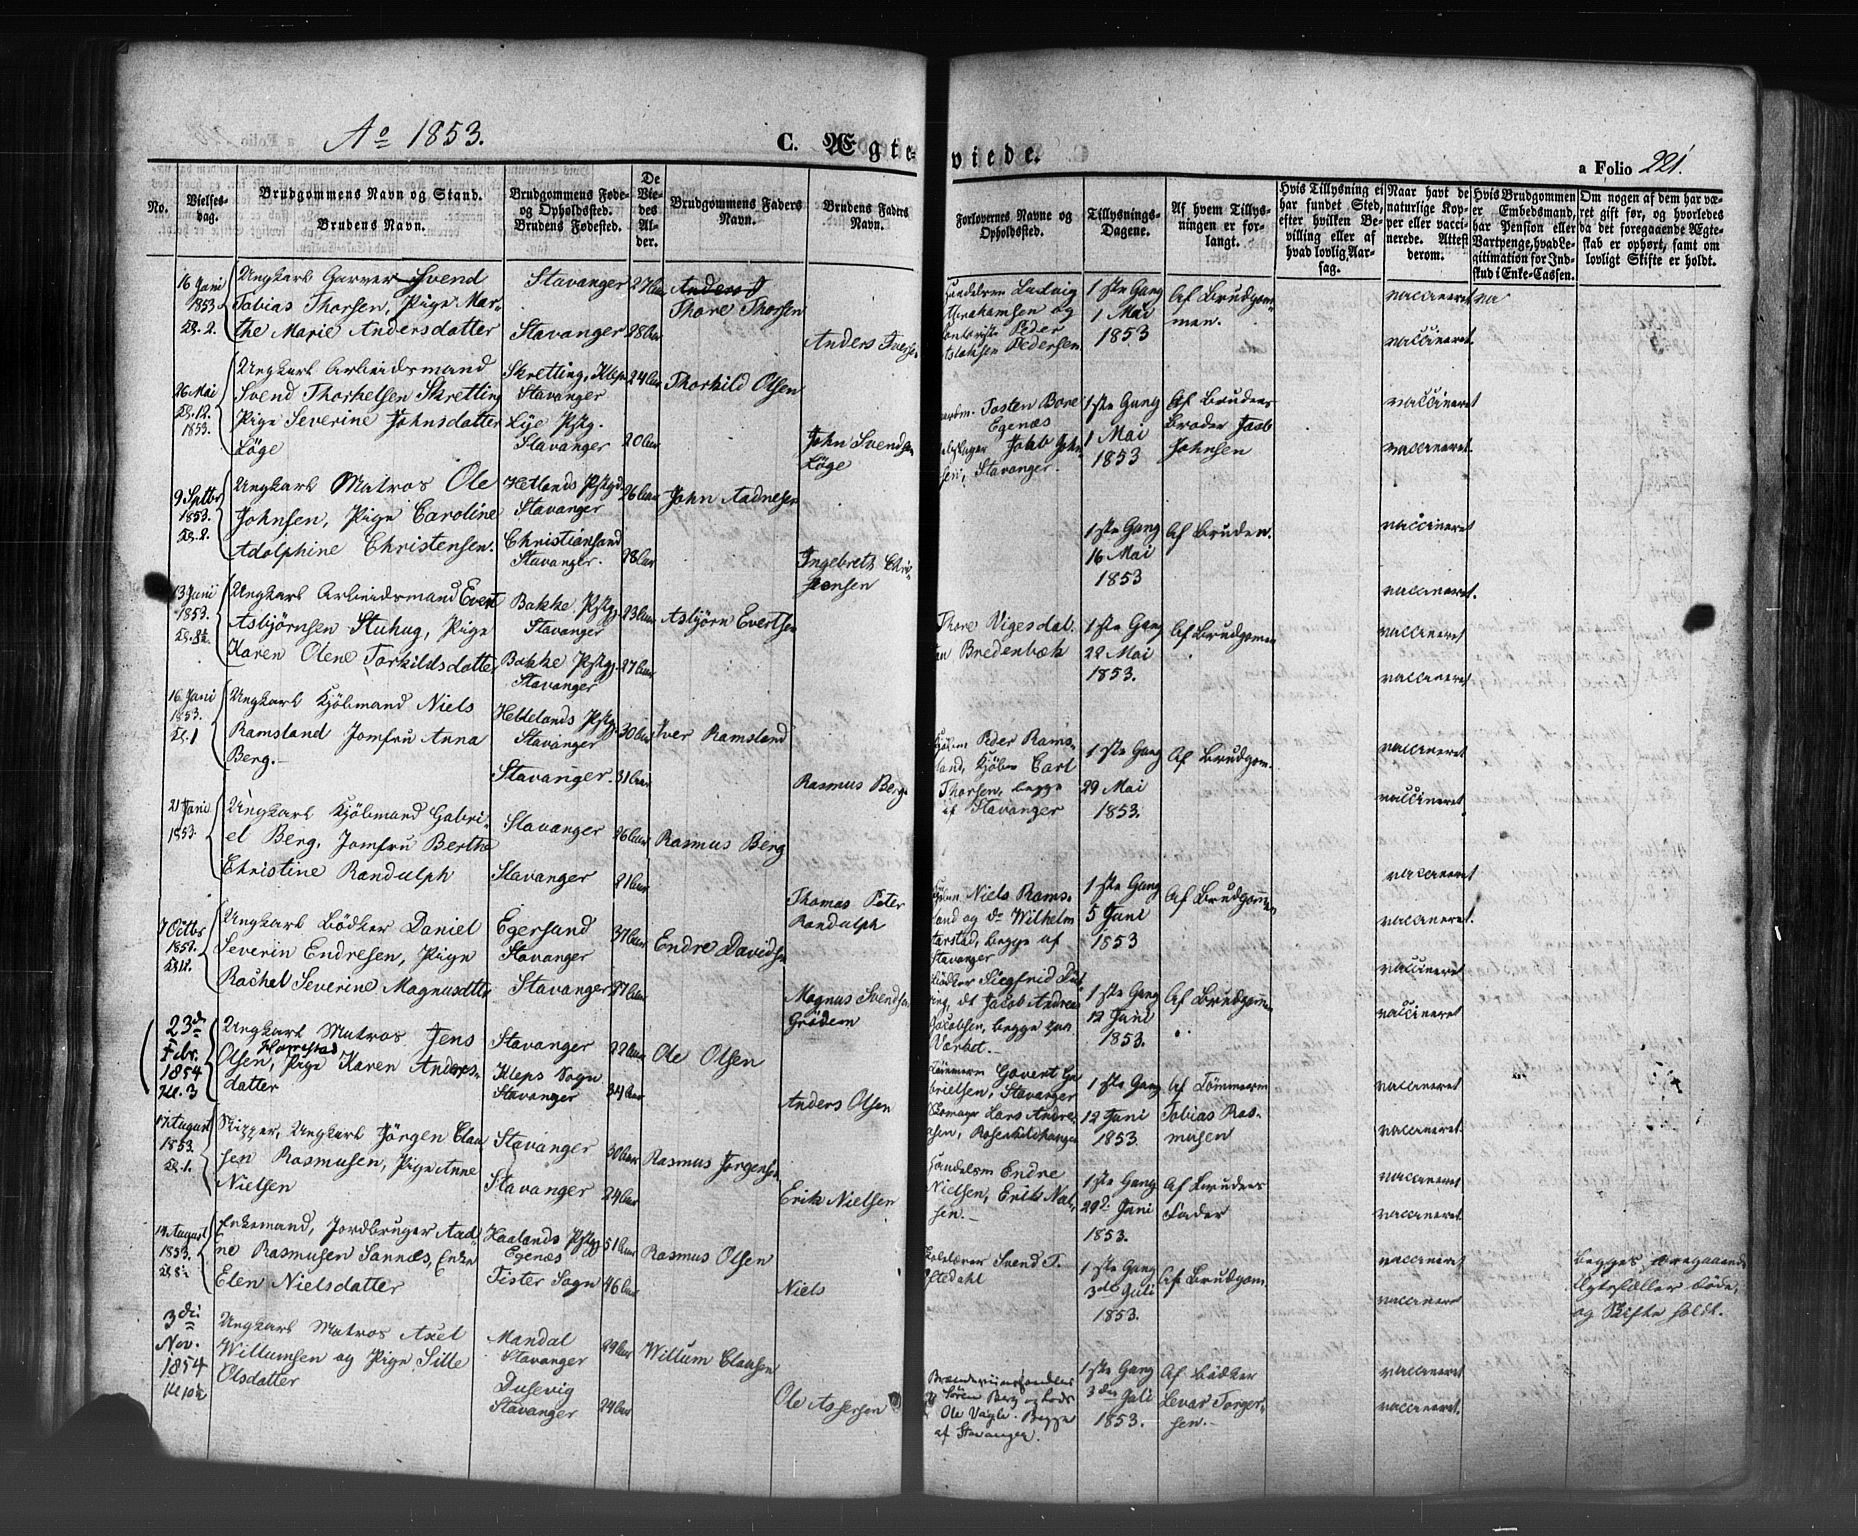 Ao 1853.
C. Ægte-
viede.
a Folio 221.
No.
Vielses-
dag.
Brudgommens Navn og Stand.
Brudens Navn.
Brudgommens Føde-
og Opholdssted.
Brudens Fødested.
De
Vie-
des
Al-
der.
Brudgommens Faders
Navn.
Brudens Faders
Navn.
Forlovernes Navne og
Opholdssted.
Tillysnings-
Dagene.
Af hvem Tillys-
ningen er for-
langt.
Hvis Tillysning ei
har fundet Sted,
efter hvilken Be-
villing eller af
hvad lovlig Aar-
sag.
Naar havt de
naturlige Kop-
per eller vacci-
nerede. Attest
derom.
Hvis Brudgommen
er Embedsmand,
har Pension eller
Vartpenge, hvad Le-
gitimation for Ind-
skud i Enke-Cassen.
Om nogen af dem har væ-
ret gift før, og hvorledes
da det foregaaende Ægte-
skab er ophørt, samt om
lovligt Skifte er holdt.
16 Juni
1853
Kl. 2.
Ungkarl Garver Svend
Tobias Thorsen, Pige Mar-
the Marie Andersdatter
Stavanger
Stavanger
27 Aar
28 Aar
Anders
Thore Thorsen
Anders Iversen
Handelsm Ludvig
Abrahamsen og
Pedersen
1ste Gang
1 Mai
1853
Af Brudgom-
men.
vaccineret
va
vaccineret
26 Mai
Kl. 12.
1853.
Ungkarl Arbeidsmand
Svend Thorkelsen Skretting
Pige Severine Johnsdatter
Løge
Skretting, Klep
Stavanger
Lye Pstg.
Stavanger
24 Aar
20 Aar
Thorkild Olsen
John Svendsen
Løge
Tosten Bore
Egenæs
Jakob John
sen, Stavanger.
1ste Gang
1 Mai
1853
Af Brudens
Broder Jacob
Johnsen
vaccineret
vaccineret.
9 Septbr
1853.
Kl. 2.
Ungkarl Matros Ole
Johnsen, Pige Caroline
Adolphine Christensen.
Hetlands Pstgd
Stavanger
Christiansand
Stavanger.
26 Aar
28 Aar
John Aadnesen
Ingebreth Chri-
stensen
1ste Gang
16 Mai
1853
Af Bruden.
vaccineret
vaccineret.
13 Juni
1853.
Kl. 8½.
Ungkarl Arbeidsmand Evert
Asbjørnsen Stuhug, Pige
Karen Olene Torkildsdatter
Bakke Pstgj.
Stavanger
Bakke Pstgj.
Stavanger
23 Aar
27 Aar
Asbjørn Evertsen
Thore Vigesdal.
Bredenbæk
1ste Gang
22 Mai
1853.
Af Brudgommen
vaccineret
vaccineret
16 Juni
1853.
Kl. 1
Ungkarl Kjøbmand Niels
Ramsland Jomfru Anna
Berg.
Stavanger
Stavanger.
30 Aar
31 Aar
Iver Ramsland
Rasmus Berg
Kjøbm Peder Rams-
land, Kjøbm Carl
Thorsen, begge
af Stavanger
1ste Gang
29 Mai
1853.
Af Brudgom.
vaccineret
vaccineret
21 Juni
1853.
Ungkarl Kjøbmand Gabri-
el Berg, Jomfru Berthe
Christine Randulph
Stavanger
Stavanger
26 Aar
21 Aar
Rasmus Berg
Thomas Peter
Randulph
Niels Rams-
land og do Wilhelm
begge af
Stavanger
1ste Gang
5 Juni
1853
Af Brudgommen
vaccineret
vaccineret.
7 Octbr
Ungkarl Bødker Daniel
Severin Endresen, Pige
Rachel Severine Magnusdtter
Egersund
Stavanger
Stavanger
37 Aar
27 Aar
Endre Davidsen
Magnus Svendsen
Grødem
Bødker Siegfrid
Jacob Andreas
Jacobsen, begge
1ste Gang
12 Juni
1853.
Af Brudgommen
vaccineret
vaccineret
23de
Febr.
1854
Kl. 3
Ungkarl Matros Jens
Olsen, Pige Karen Anders-
datter
Stavanger
Kleps Sogn
Stavanger
22 Aar
34 Aar
Ole Olsen
Anders Olsen
Govert Ga
brielsen, Stavanger
Lars Andre-
asen,
1ste Gang
12 Juni
1853.
Af Tømmerm
Tobias Ras-
musen
vaccineret
vaccineret
17 August
1853.
Kl. 1.
Skipper, Ungkarl Jørgen Clau-
sen Rasmusen, Pige Anne
Nielsen
Stavanger
Stavanger
30 Aar
24 Aar
Rasmus Jørgensen
Erik Nielsen
Handelsm Endre
Nielsen, Erik Niel-
sen.
1ste Gang
29de Juni
1853.
Af Brudens
Fader
vaccineret
vaccineret
14 August
1853.
Kl. 8½
Enkemand, Jordbruger Aad-
ne Rasmusen Sannæs, Enke
Elen Nielsdatter
Haalands Pstgj
Egenæs
Tister Sogn
51 Aar
46 Aar
Rasmus Olsen
Niels
Svend T.
1ste Gang
3die Juli
1853.
Af Brudgom
vaccineret
vaccineret
begges foregaaende
Ægtefæller døde,
og Skifte holdt.
3die
Nov.
1854
Kl 10½
Ungkarl Matros Axel
Willumsen og Pige Sille
Olsdatter
Mandal
Stavanger
Dusevig
Stavanger
29 Aar
24 Aar
Willum Clausen
Ole Assersen
Søren Berg og Lods
Ole Vagle. Begge
af Stavanger.
1ste Gang
3die Juli
1853.
Af Bødker
Levar Torger-
sen.
vaccineret
vaccineret.